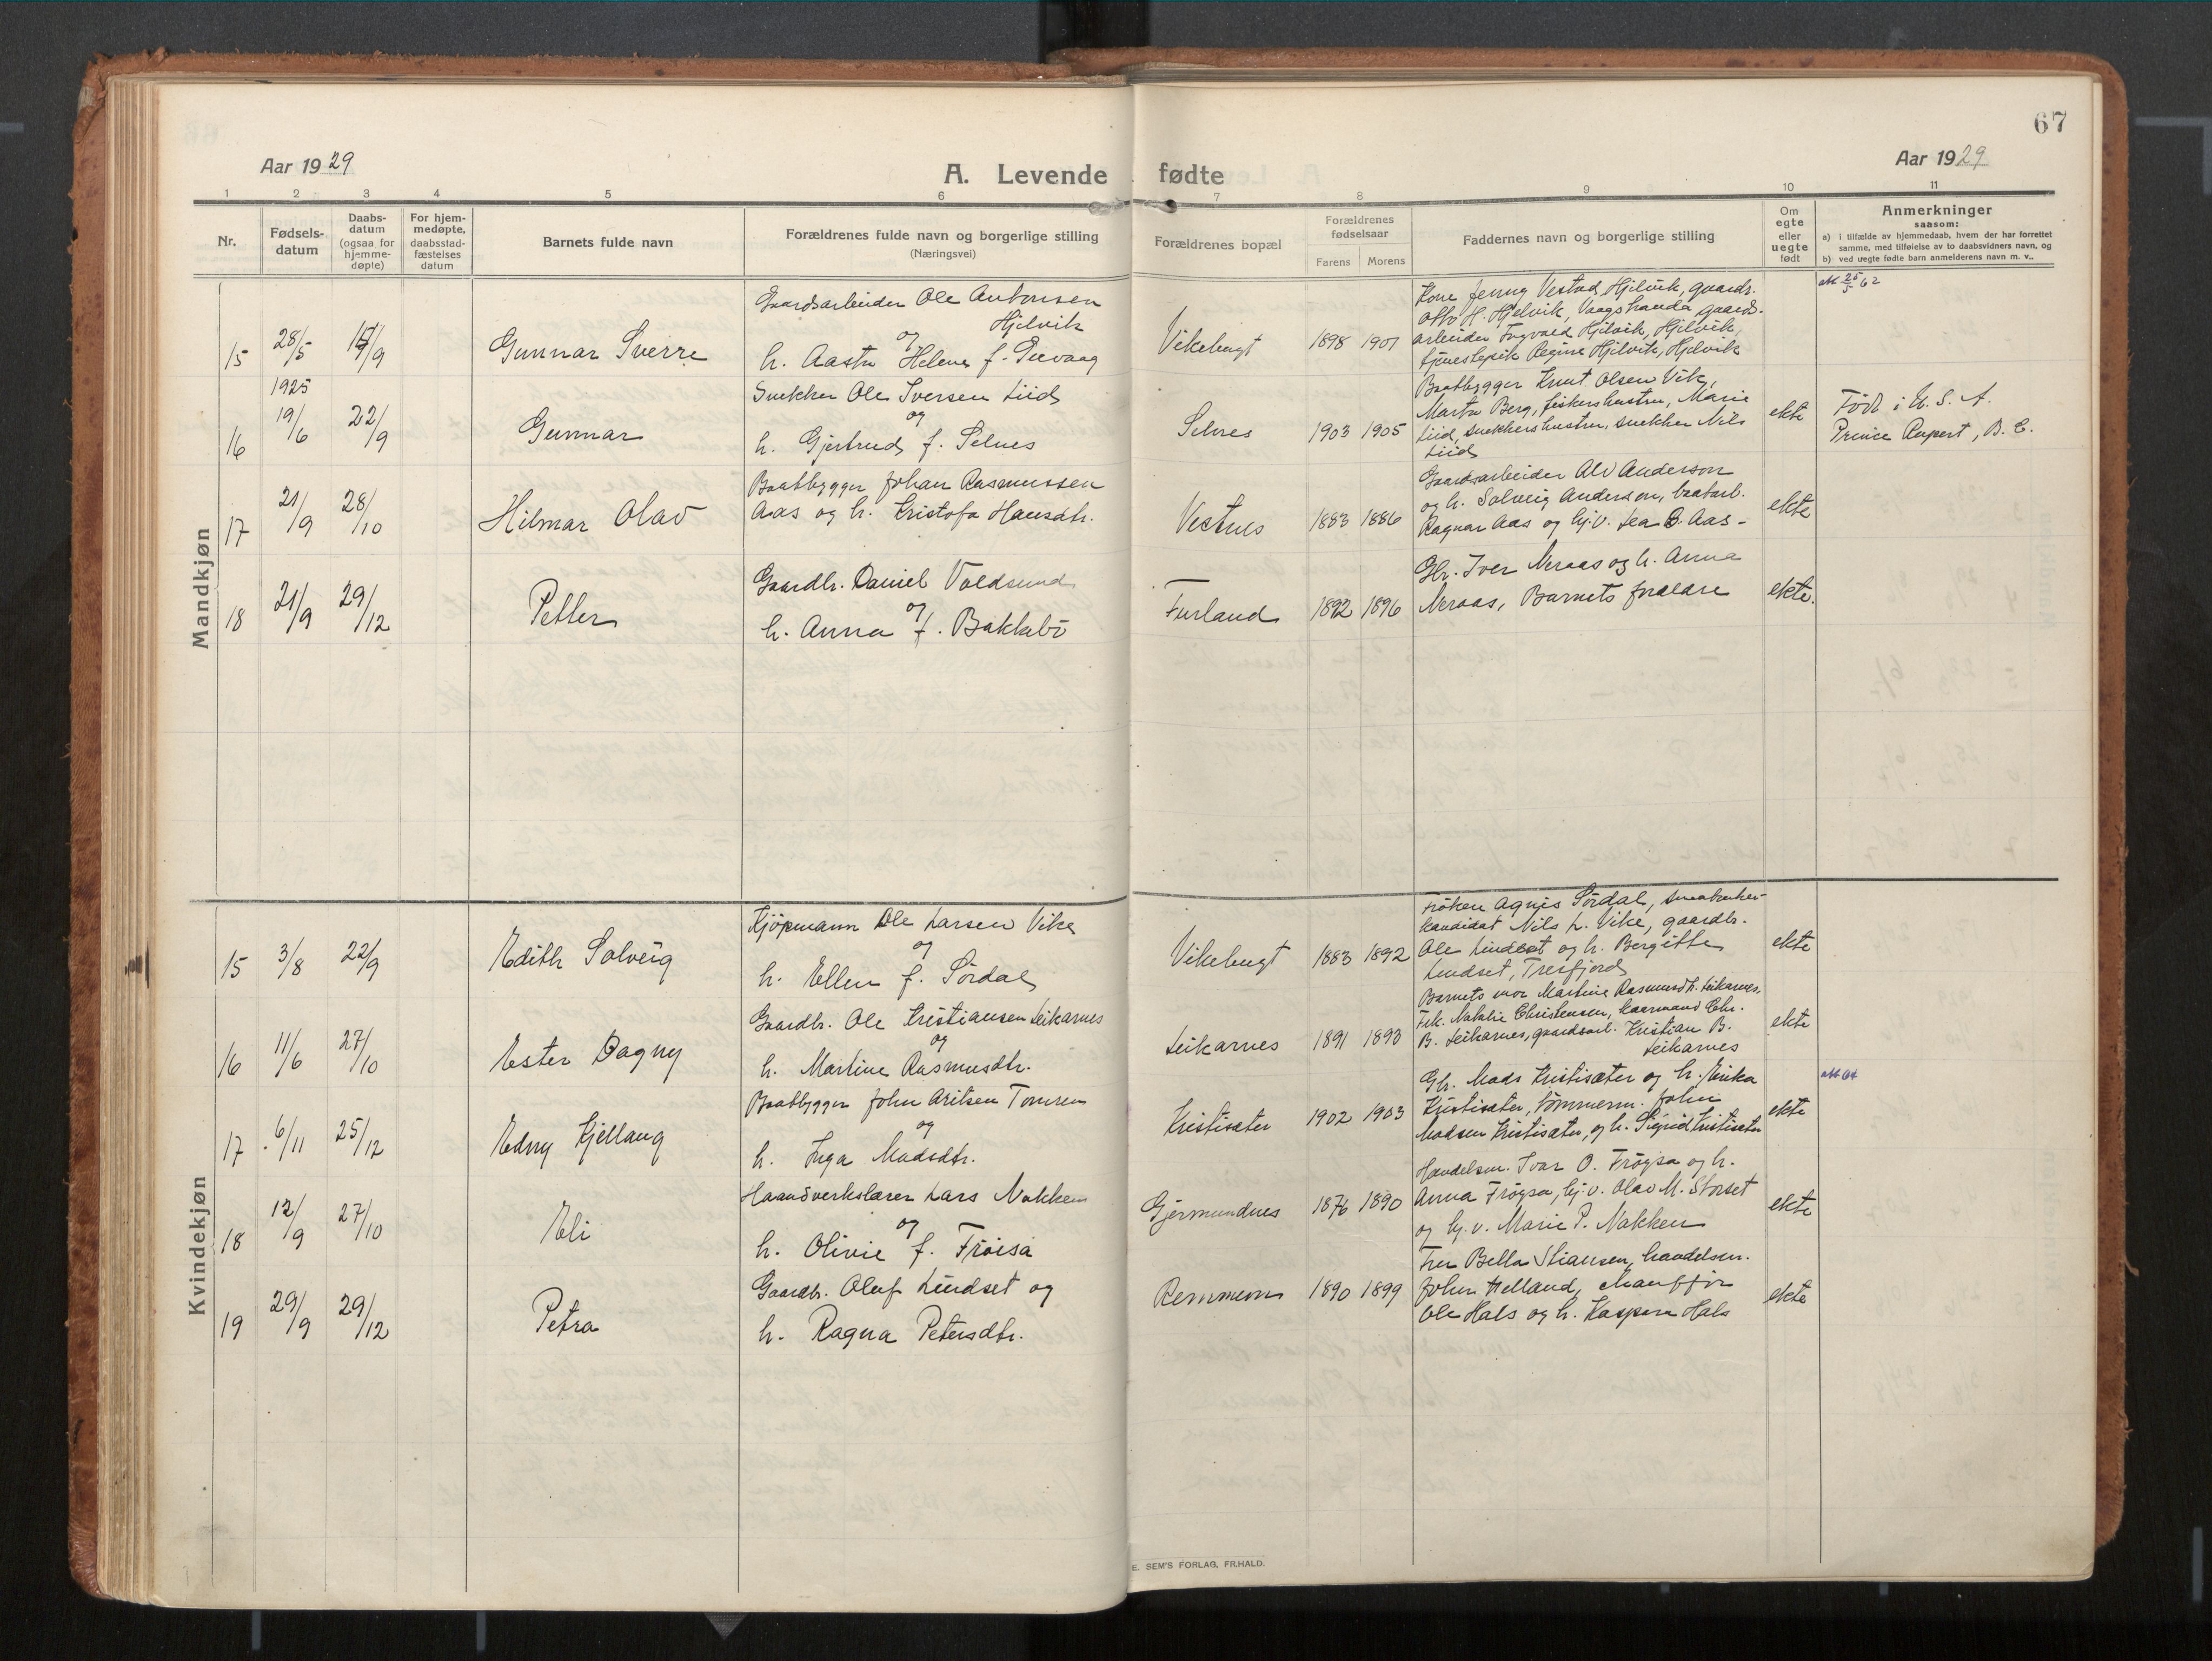 67
Aar 1929
A. Levende fødte
Aar 1929
1 2 3 4 5 6 7 8 9 10 11
Nr.
Fødsels-
datum
Daabs-
datum
(ogsaa for
hjemme-
døpte)
For hjem-
medøpte,
daabsstad-
fæstelses
datum
Barnets fulde navn
Forældrenes fulde navn og borgerlige stilling
(Næringsvei)
Forældrenes bopæl
Forældrenes
fødselsaar
Farens Morens
Faddernes navn og borgerlige stilling
Om
egte
eller
uegte
født
Anmerkninger
saasom:
a) i tilfælde av hjemmedaab, hvem der har forrettet
samme, med tilføielse av to daabsvidners navn, og
b) ved uegte fødte barn anmelderens navn m. v..
Mandkjøn
15 28/5 /9 Gunnar Sverre
Gaardsarbeider Ole Antonsen
Hjelvik
og
h. Aasta Helene f.
Vikebugt 1898 1901
Kone Jenny Vestad Hjelvik, gaardb.
Otto H. Hjelvik, Vaagstranda, gaards-
arbeider Ingvald Hjelvik, Hjelvik,
tjenestepik Regine Hjelvik, Hjelvik
att 25/5 62
1925
16 19/6 22/9 Gunnar
Snekker Ole Iversen Liid
og
h. Gjertrud f. Selnes
Selnes 1903 1905
Baatbygger Knut Olsen Vik,
Marta Berg, fiskershustru, Marie
Liid, snekkershustru, snekker Nils
Liid
ekte
Född i U. S. A.
Prince Rupert, B. C.
17 21/9 28/10 Hilmar Olav
Baatbygger Johan Rasmussen
Aas og h. Kristofa Hansdtr.
Vestnes 1883 1886
Gaardsarbeider Alv Anderson
og h. Solveig Anderson, baatarb.
Ragnar Aas og hj.v. Lea B. Aas -
ekte
18 21/9 29/12 Petter
Gaardbr. Daniel Voldsund
og
h. Anna f. Bakkebö
Furland 1892 1896
Gbr. Iver Neraas og h. Anna
Neraas, Barnets foraldre
ekte.
Kvindekjøn
15 3/8 22/9 Edith Solveig
Kjöpmann Ole Larsen Vike
og
h. Ellen f. Sördal
Vikebugt 1883 1892
Fröken Agnes Sördal,
kandidat Nils L. Vike, gaardbr.
Ole Lindset og h. Bergitte
Lindset, Tresfjord
ekte
16 11/6 27/10 Ester Dagny
Gaardbr. Ole Kristiansen Leikarnes
og
h. Martine Rasmusdtr.
Leikarnes 1891 1893
Barnets mor Martine Rasmusdtr. Leikarnes.
Frk. Natalie Christensen, kaarmand Chr.
B. Leikarnes, gaardsarb. Kristian B.
Leikarnes
ekte
17 6/11 25/12 Edny Kjellaug
Baatbygger John Aritsen Tomren
og
h. Inga Madsdtr.
Kristisæter 1902 1903
Gbr. Mads Kristisæter og h. Erika
Kristisæter, tömmerm. John
Madsen Kristisæter, og h. Sigrid Kristisæter
ekte
att 64
18 12/9 27/10 Eli
Haandverkslærer Lars Nakken
og
h. Olivie f. Fröisa
Gjermundnes 1876 1890
Handelsm. Ivar O. Fröysa og h.
Anna Fröysa, hj.v. Olav M. Storset
og hj.v. Marie P. Nakken
ekte
19 29/9 29/12 Petra
Gaardbr. Oluf Lindset og
h. Ragna Petersdtr.
Remmem 1890 1899
Fru Bella Stiansen, handelsm.
John Helland, chauffør
Ole Hals og h. Kaspara Hals
ekte
E. SEM'S FORLAG, FR.HALD.